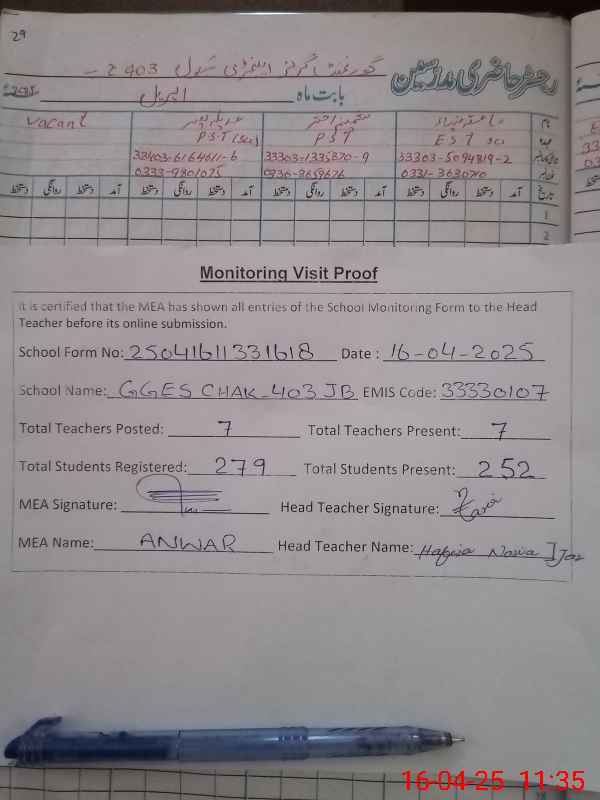 29
رجسٹر حاضری مدرسین گورنمنٹ گرلز ایلیمنٹری سکول 403
بابت ماہ اپریل
نام
Vacant
عہدہ EST PST PST
33303-5094819-2 33303-1335370-9 33403-6164611-6
0331-3630740 0336-8659676 0333-9801075
تاریخ آمد دستخط روانگی دستخط آمد دستخط روانگی دستخط آمد دستخط روانگی دستخط آمد دستخط روانگی دستخط
1
2
Monitoring Visit Proof
It is certified that the MEA has shown all entries of the School Monitoring Form to the Head
Teacher before its online submission.
School Form No: 25041611331618 Date : 16-04-2025
School Name: GGES CHAK-403 JB EMIS Code: 33330107
Total Teachers Posted: 7 Total Teachers Present: 7
Total Students Registered: 279 Total Students Present: 252
MEA Signature: Head Teacher Signature:
MEA Name: ANWAR Head Teacher Name: Hafiza Nazia
16-04-25 11:35